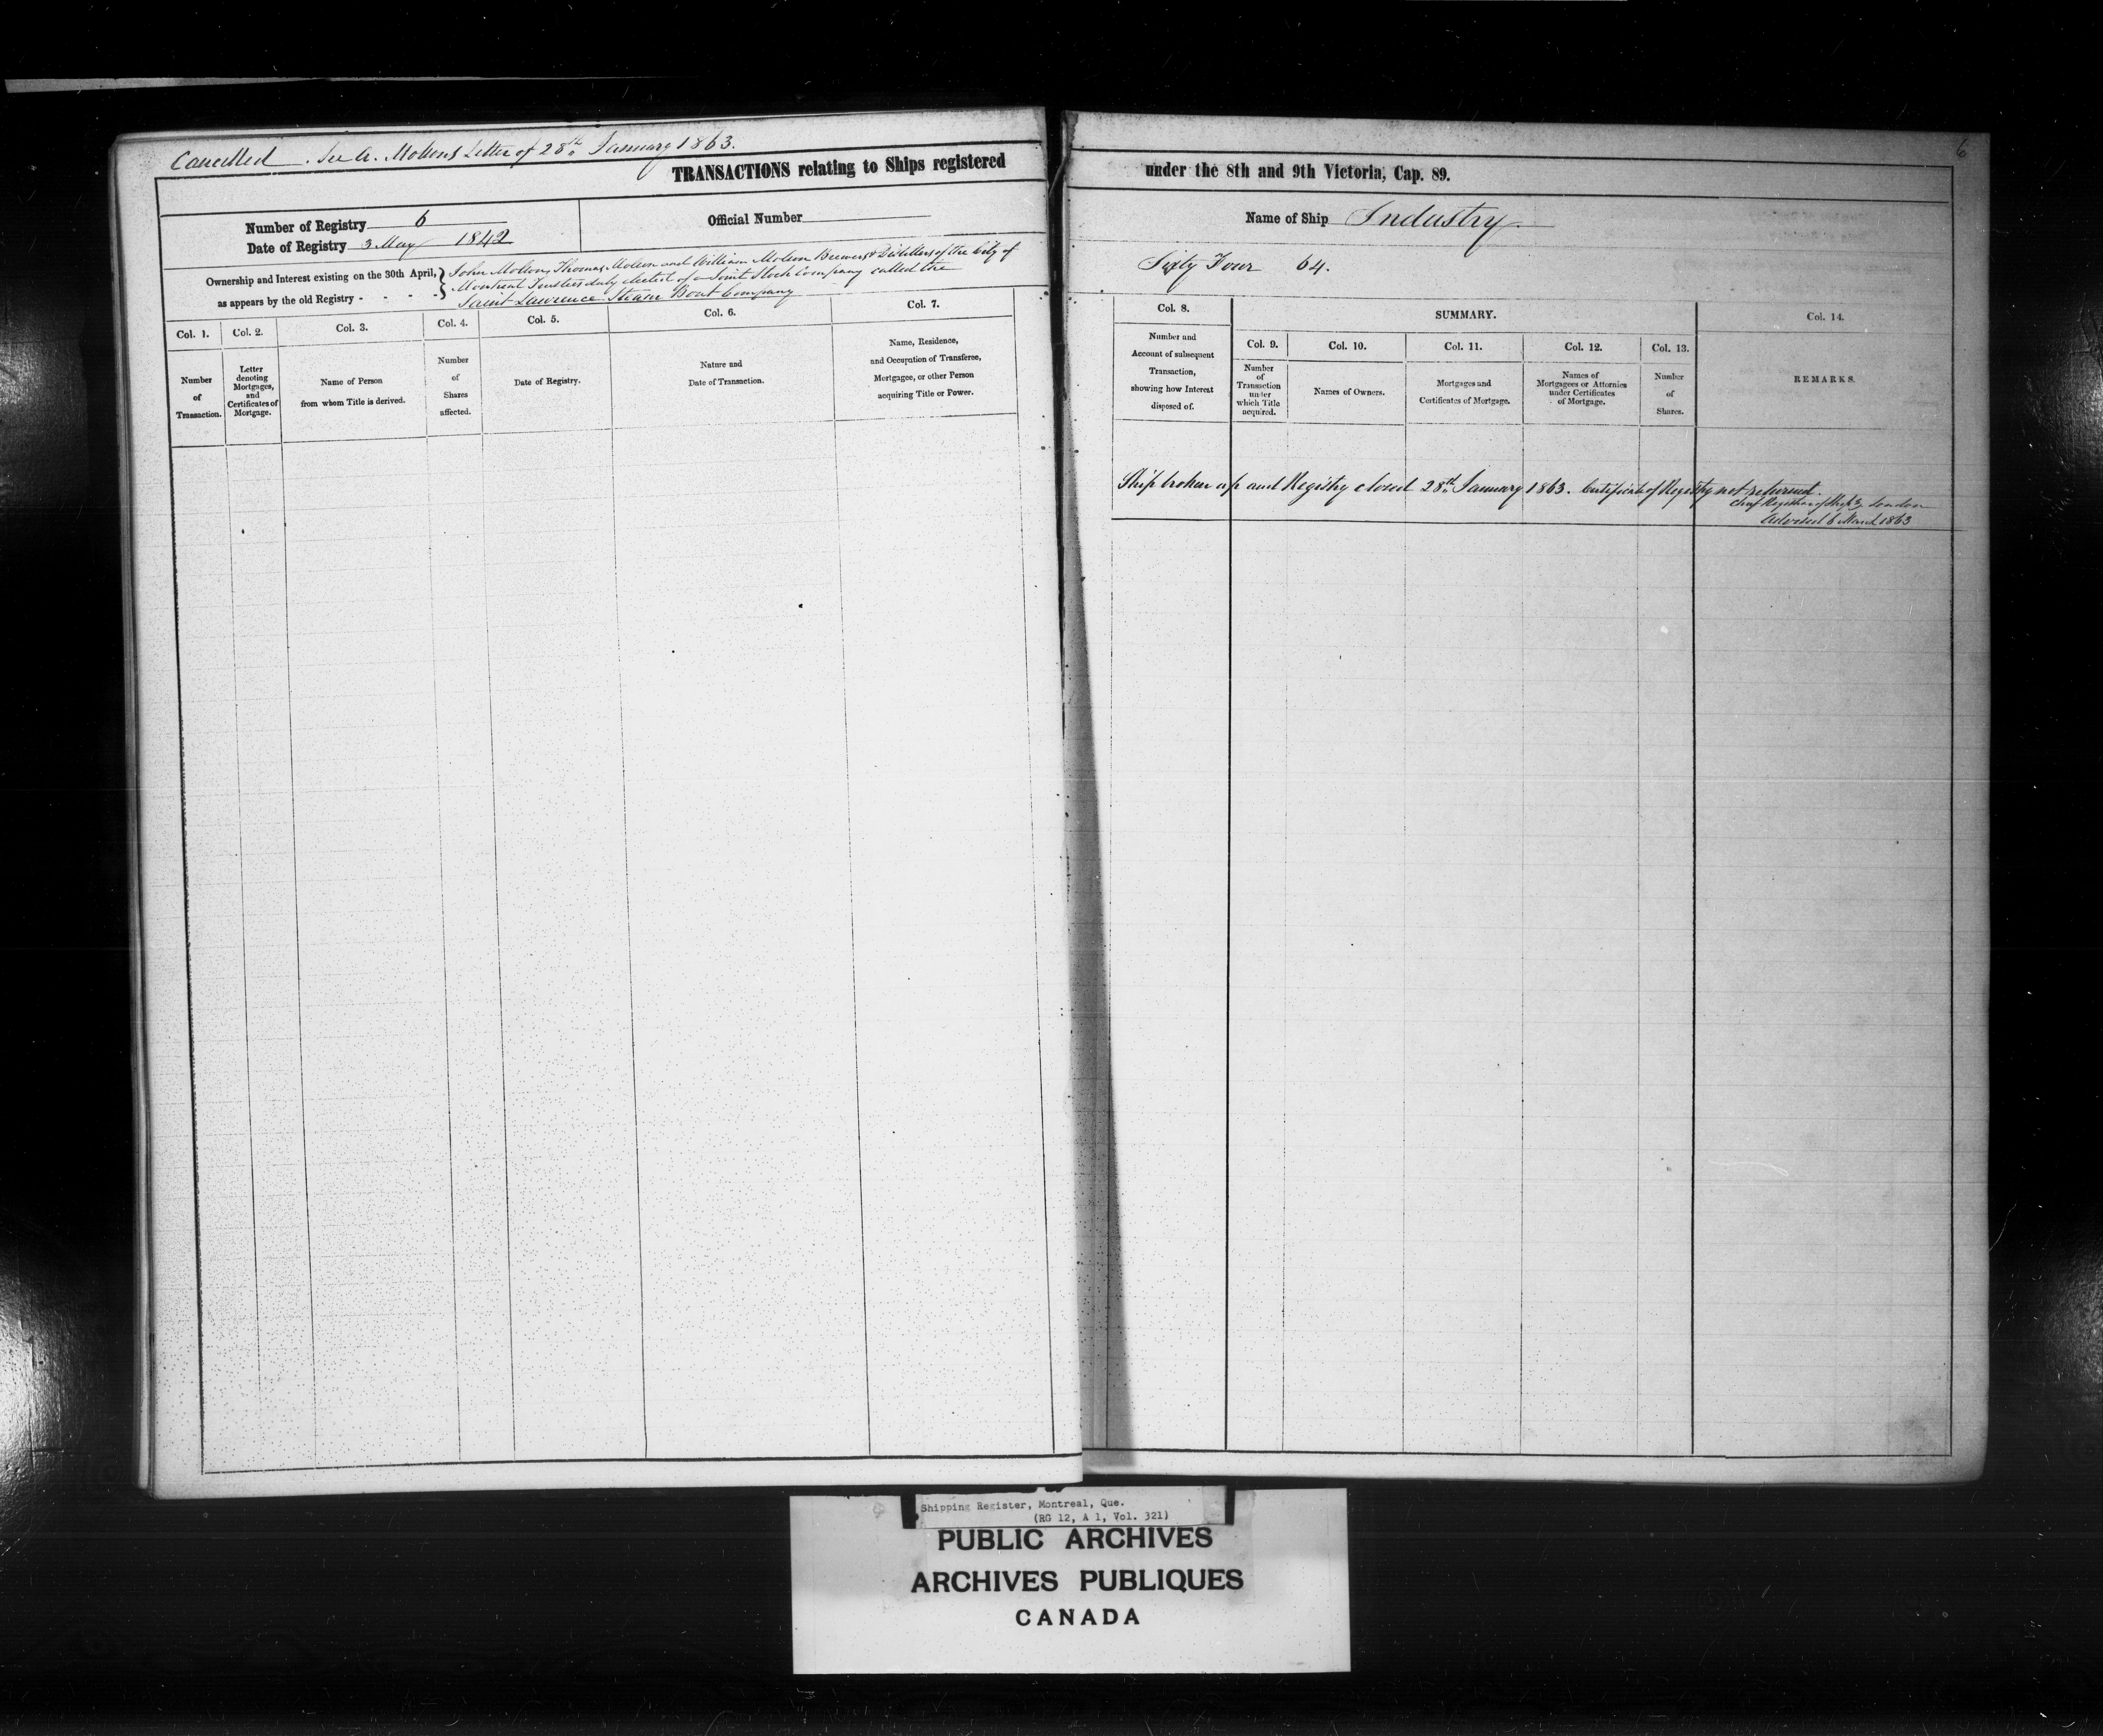 Cancelled. See A. Molsons Letter of 28th January 1863.
6
TRANSACTIONS relating to Ships registered under the 8th and 9th Victoria, Cap. 89.
Number of Registry 6
Official Number
Name of Ship Industry.
Date of Registry 3 May 1842
Ownership and Interest existing on the 30th April,
as appears by the old Registry - - - -
John Molson, Thomas Molson and William Molson Brewers & Distillers of the City of
Montreal Trustees duly elected of a Joint Stock Company called the
Saint Lawrence Steam Boat Company
Sixty Four 64.
Col. 1.
Number
of
Transaction.
Col. 2.
Letter
denoting
Mortgages,
and
Certificates of
Mortgage.
Col. 3.
Name of Person
from whom Title is derived.
Col. 4.
Number
of
Shares
affected.
Col. 5.
Date of Registry.
Col. 6.
Nature and
Date of Transaction.
Col. 7.
Name, Residence,
and Occupation of Transferee,
Mortgagee, or other Person
acquiring Title or Power.
Col. 8.
Number and
Account of subsequent
Transaction,
showing how Interest
disposed of.
SUMMARY.
Col. 9.
Number
of
Transaction
under
which Title
acquired.
Col. 10.
Names of Owners.
Col. 11.
Mortgages and
Certificates of Mortgage.
Col. 12.
Names of
Mortgagees or Attornies
under Certificates
of Mortgage.
Col. 13.
Number
of
Shares.
Col. 14.
REMARKS.
Ship broken up and Registry closed 28th January 1863. Certificate of Registry not returned.
Chief Registrar of Shipg London
Advised 6 March 1863
Shipping Register, Montreal, Que.
(RG 12, A 1, Vol. 321)
PUBLIC ARCHIVES
ARCHIVES PUBLIQUES
CANADA